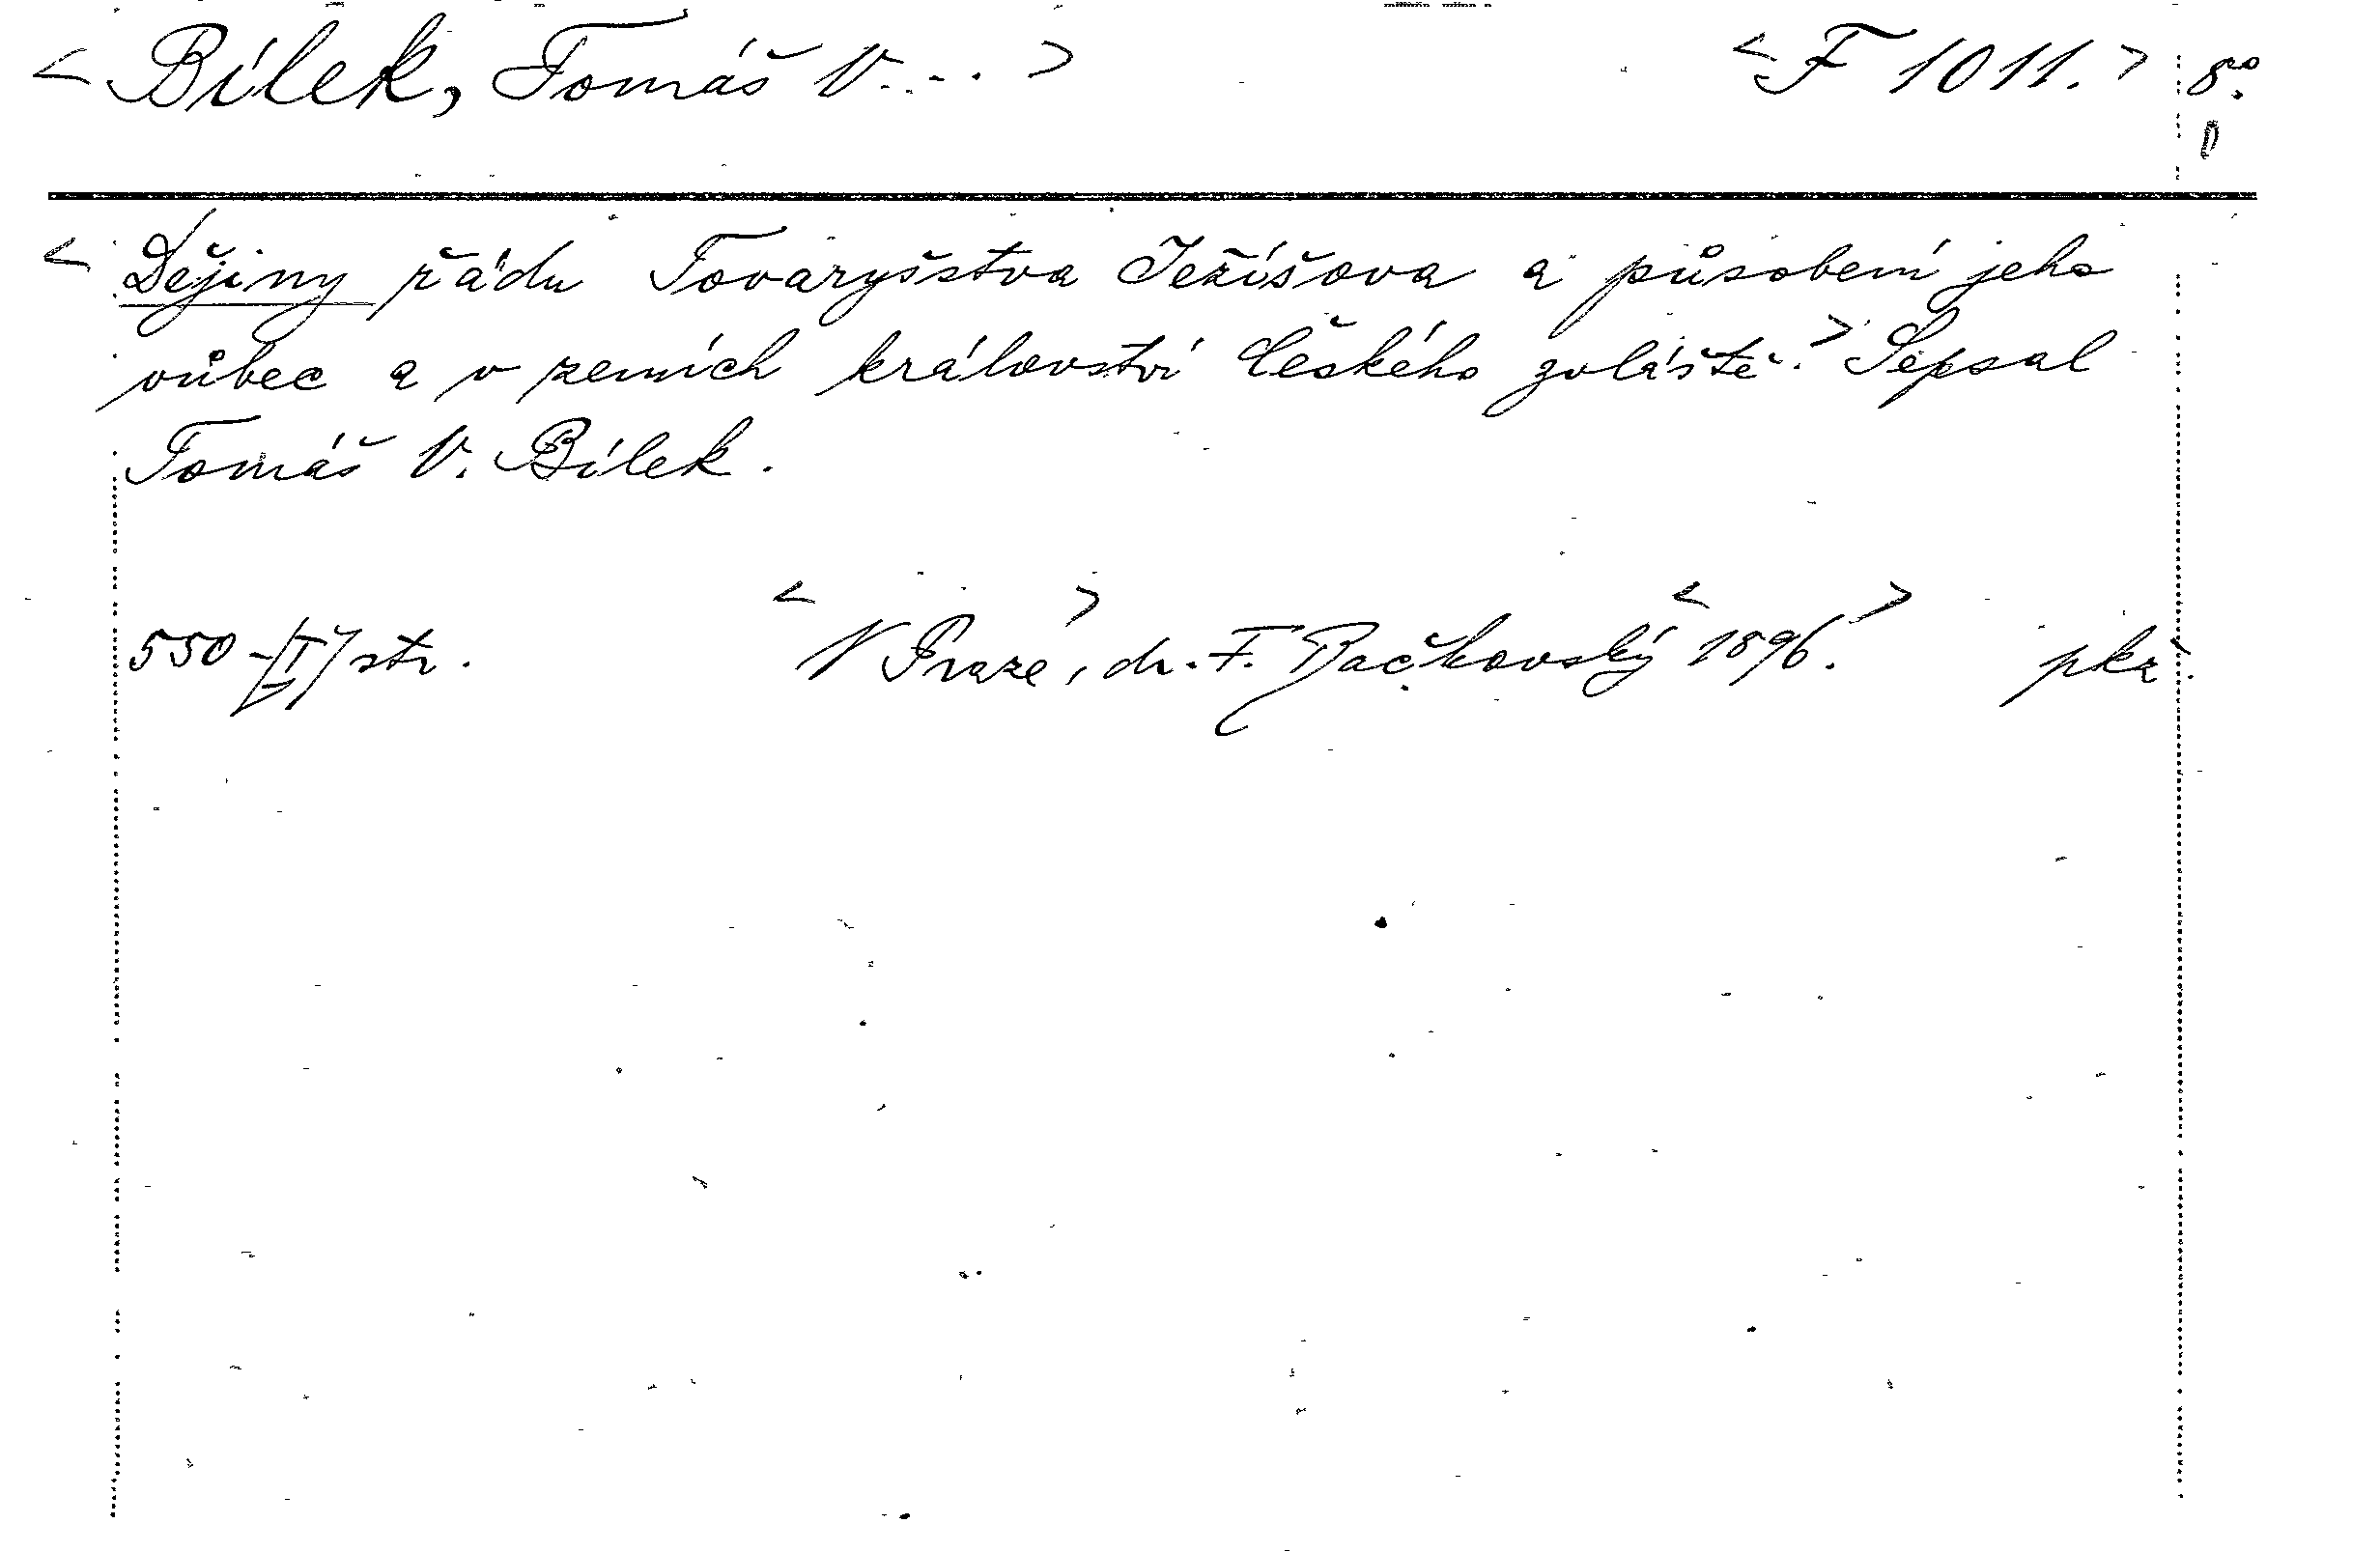 < Bílek, Tomáš V... > < F 1011. > 8°.
< Dějiny řádu Tovaryšstva Ježíšova a působení jeho
vůbec a v zemích království Českého zvláště. > Sepsal
Tomáš V. Bílek.
550 - /I/ str. < V Praze >, dr. F. Bačkovský < 1896. > pkž.